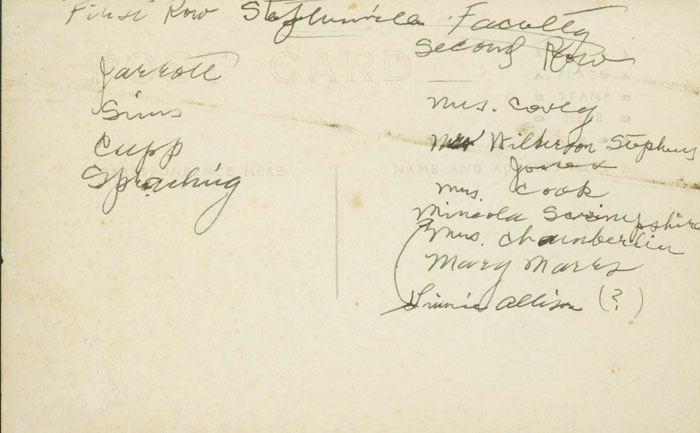 First Row Stephenville Faculty
Second Row
Jarrott
Sims
Cupp
Mrs. Covey
Wilkerson Stephens
Jones
Mrs. Cook
Mineola Scrimpshire
Mrs. Chamberlin
Mary Marrs
Allison (?)
POST CARD
PLACE
STAMP
HERE
NAME AND